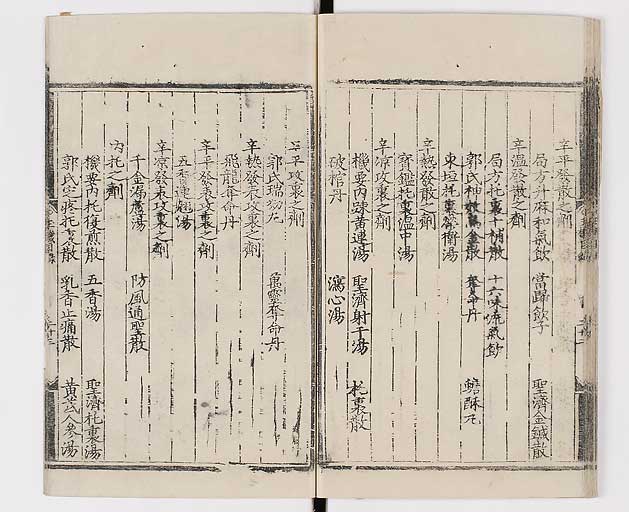 辛平發散之劑
局方升麻和氣飮 當歸飮子 聖濟金鍼散
辛溫發散之劑
局方托裏十補散 十六味流氣飮
郭氏神 散 丹 蟾酥丸
東垣托裏榮衛湯
辛熱發散之劑
寶鑑托裏溫中湯
辛凉攻裏之劑
機要內踈黃連湯 聖濟射干湯 托裏散
破棺丹 瀉心湯
辛平攻裏之劑
郭氏瑞 丸 奪命丹
辛熱發表攻裏之劑
飛龍奪命丹
辛平發表攻裏之劑
五香連翹湯
辛凉發表攻裏之劑
千金漏蘆湯 防風通聖散
內托之劑
機要內托復煎散 五香湯 聖濟托裏湯
郭氏定疼托裏散 乳香止痛散 黃芪人參湯